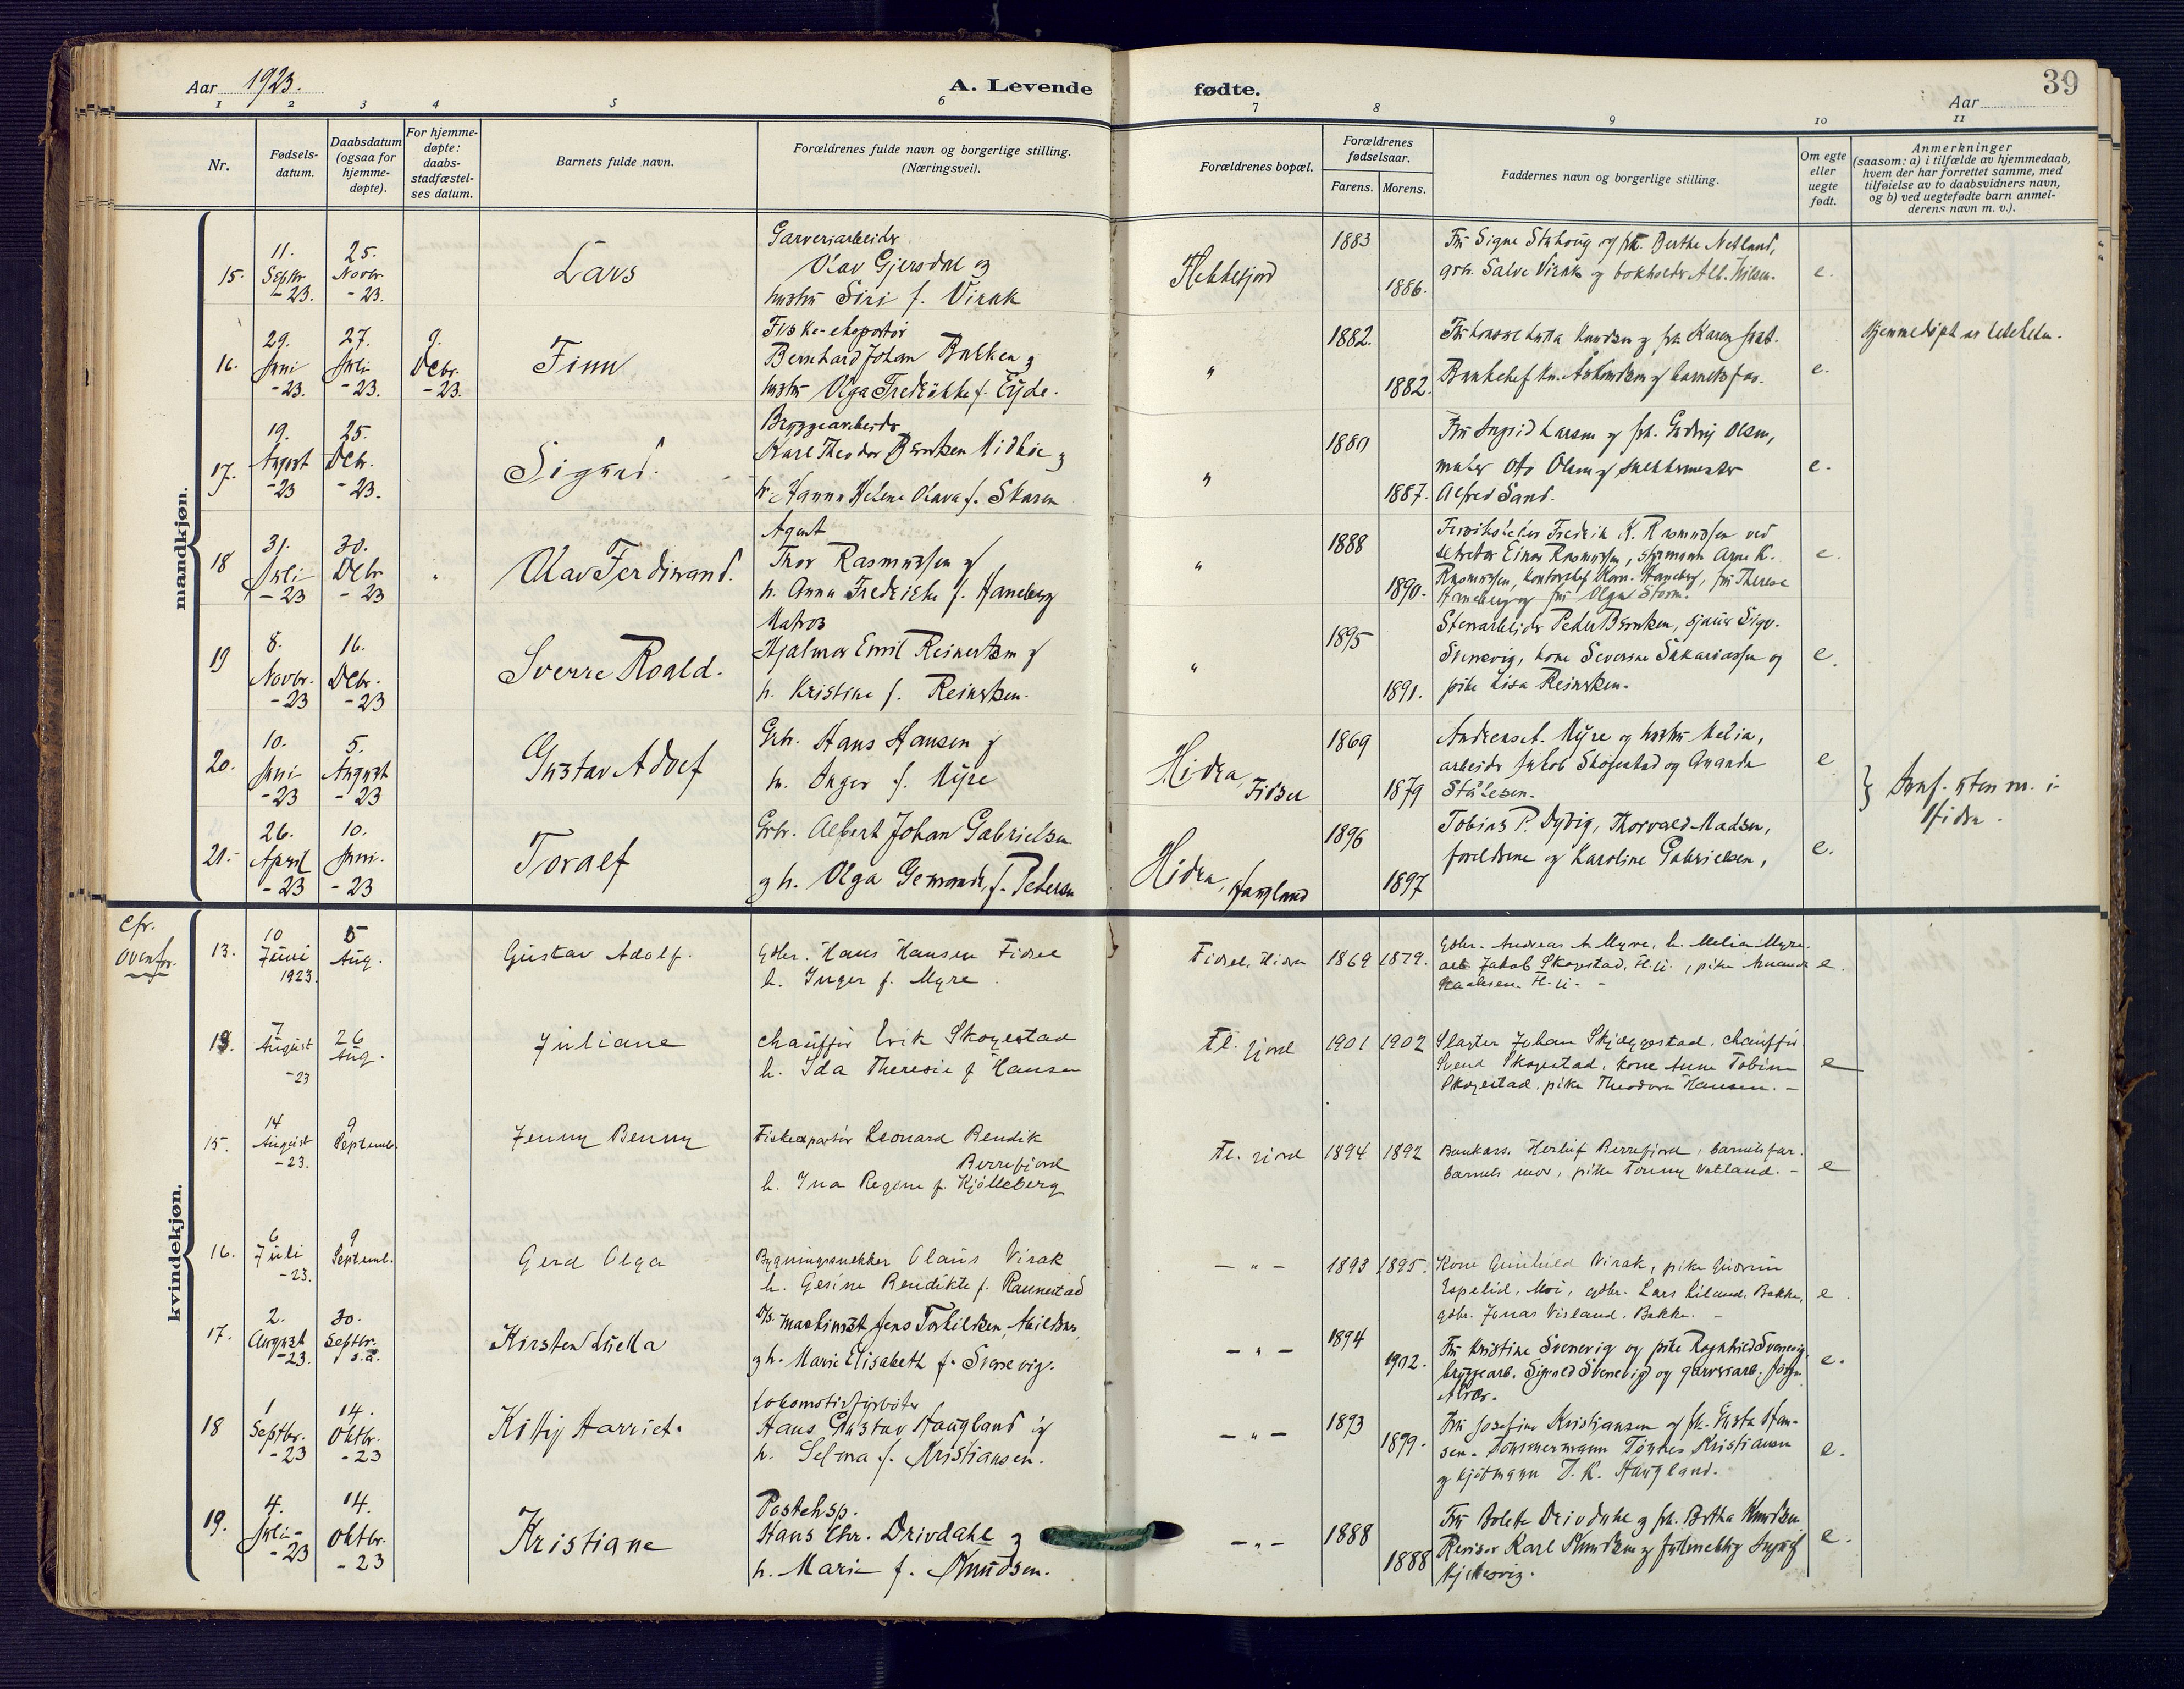 Aar 1923.
A. Levende fødte.
39
Aar
1 2 3 4 5 6 7 8 9 10 11
Nr.
Fødsels-
datum.
Daabsdatum
(ogsaa for
hjemme-
døpte).
For hjemme-
døpte:
daabs-
stadfæstel-
ses datum.
Barnets fulde navn.
Forældrenes fulde navn og borgerlige stilling.
(Næringsvei).
Forældrenes bopæl.
Forældrenes
fødselsaar.
Farens. Morens.
Faddernes navn og borgerlige stilling.
Om egte
eller
uegte
født.
Anmerkninger
(saasom: a) i tilfælde av hjemmedaab,
hvem der har forrettet samme, med
tilføielse av to daabsvidners navn,
og b) ved uegtefødte barn anmel-
derens navn m. v.).
mandkjøn.
15. 11. Septr. -23. 25. Novbr. -23.
Lars
Garveriarbeider
Olav Gjersdal og
hustru Siri f. Virak
Flekkefjord
1883 1886.
Fru Signe og frk. Berthe Netland,
grb. Salve Virak og bokholder Alb. Nilsen.
e.
16. 29. Juni -23. 27. Juli -23. 9. Debr. -23.
Finn
Fiske-eksportør
Bernhard Johan Bakken og
hustru Olga Fredrikke f. Eyde.
"
1882. 1882.
Knudsen og frk. Karen
og barnets far.
e.
Hjemmedøpt av
17. 19. August -23 25. Debr. -23.
Sigurd.
Bryggearbeider
Karl Theodor Berntsen Midbøe og
h. Hanna Helene Olava f. Skaren
"
1880 1887.
Fru Ingrid Larsen og frk. Olsen,
maler Otto Olsen og snekkermester
Alfred Sand.
e.
18 31. Juli -23 30. Debr -23 "
Olav Ferdinand.
Agent
Thor Rasmussen og
h. Anna Fredrikke f. Haneberg
"
1888 1890.
Fredrik K. Rasmussen ved
Einar Rasmussen, styrmann Arne K.
Rasmussen, kontorchef Haneberg, fru Therese
Haneberg og fru Olga Storm.
e.
19 8. Novbr. -23 16. Debr. -23
Sverre Roald.
Matros
Hjalmar Emil Reinertsen og
h. Kristine f. Reinertsen.
"
1895 1891.
Stenarbeider Peder Berntsen, sjauer Sigv.
Svenevig, kone Severine Sakariassen og
pike Lisa Reinertsen.
e.
20. 10. Juni -23 5. August -23
Gustav Adolf
Grb. Hans Hansen og
h. Inger f. Myre
Hidra, Fidsel
1869 1879
Andreas A. Myre og hustru Melia,
arbeider Jakob Skogestad og Amanda
Stålesen.
e
21. 26. April -23 10. Juni. -23
Toralf
Grb. Albert Johan Gabrielsen
og h. Olga f. Pedersen
Hidra, Haugland
1896 1897
Tobias P. Dybig, Thorvald Madsen,
foreldrene og Karoline Gabrielsen,
e.
} i
Hidra.
kvindekjøn.
Cfr.
ovenfor.
13. 10 Juni 1923. 5 Aug.
Gustav Adolf.
Gdbr. Hans Hansen Fidsel
h. Inger f. Myre.
Fidsel, Hidra
1869 1879.
Gdbr. Andreas A. Myre, h. Melia Myre.
arb. Jakob Skogestad, H. u., pike Amanda
Staalesen. H. u. -
e.
7 August -23 26 Aug.
Juliane
Chauffør Erik Skogestad
h. Ida Theresie f Hansen
Fl. fjord
1901 1902
Slagter Johan Skjeggestad, chauffør
Svend Skogestad, kone Anne Tobine
Skogestad, pike Theodora Hansen. -
e
15. 14 August -23. 9 Septemb.
Jenny Benny
Fiskexportør Leonard Bendik
Berrefjord
h. Ina Regine f. Kjølleberg
Fl. fjord
1894 1892
Bankass. Herluf Berrefjord, barnets far.
barnets mor, pike Tonny Vatland. -
e
16. 6 Juli -23. 9 Septemb.
Gerd Olga
Bygningssnekker Olaus Virak
h. Gesine Bendikte f. Raunestad
- " -
1893 1895.
Kone Gunhild Virak, pike Gudrun
Espelid, Moi, gdbr. Lars Liland, Bakke,
gdbr. Jonas Visland, Bakke. -
e.
17. 2. August -23. 30. Septbr. s.a.
Kirsten Luella
D/s. maskinist Jens Torkildsen
og h. Marie Elisabeth f. Svenevig.
- " -
1894 1902.
Fru Kristine Svenevig og pike Ragnhild Svenevig,
bryggearb. Sigvald Svenevig og garveriarb.
e.
18 1 Septbr. -23 14. Oktbr. -23
Kitty Harriet.
Lokomotivfyrbøter
Hans Gustav Haugland og
h. Selma f. Kristiansen.
- " -
1893 1899.
Fru Josefine Kristiansen og frk. Gusta Han-
sen. Tømmermann Tønnes Kristiansen
og kjøpmann J. K. Haugland.
e.
19. 4. Juli -23 14. Oktbr. -23
Kristiane
Posteksp.
Hans Chr. Drivdahl og
h. Marie f. Knudsen.
- " -
1888 1888
Fru Bolette Drivdahl og frk. Bertha Knudsen
Revisor Karl Knudsen og
e.